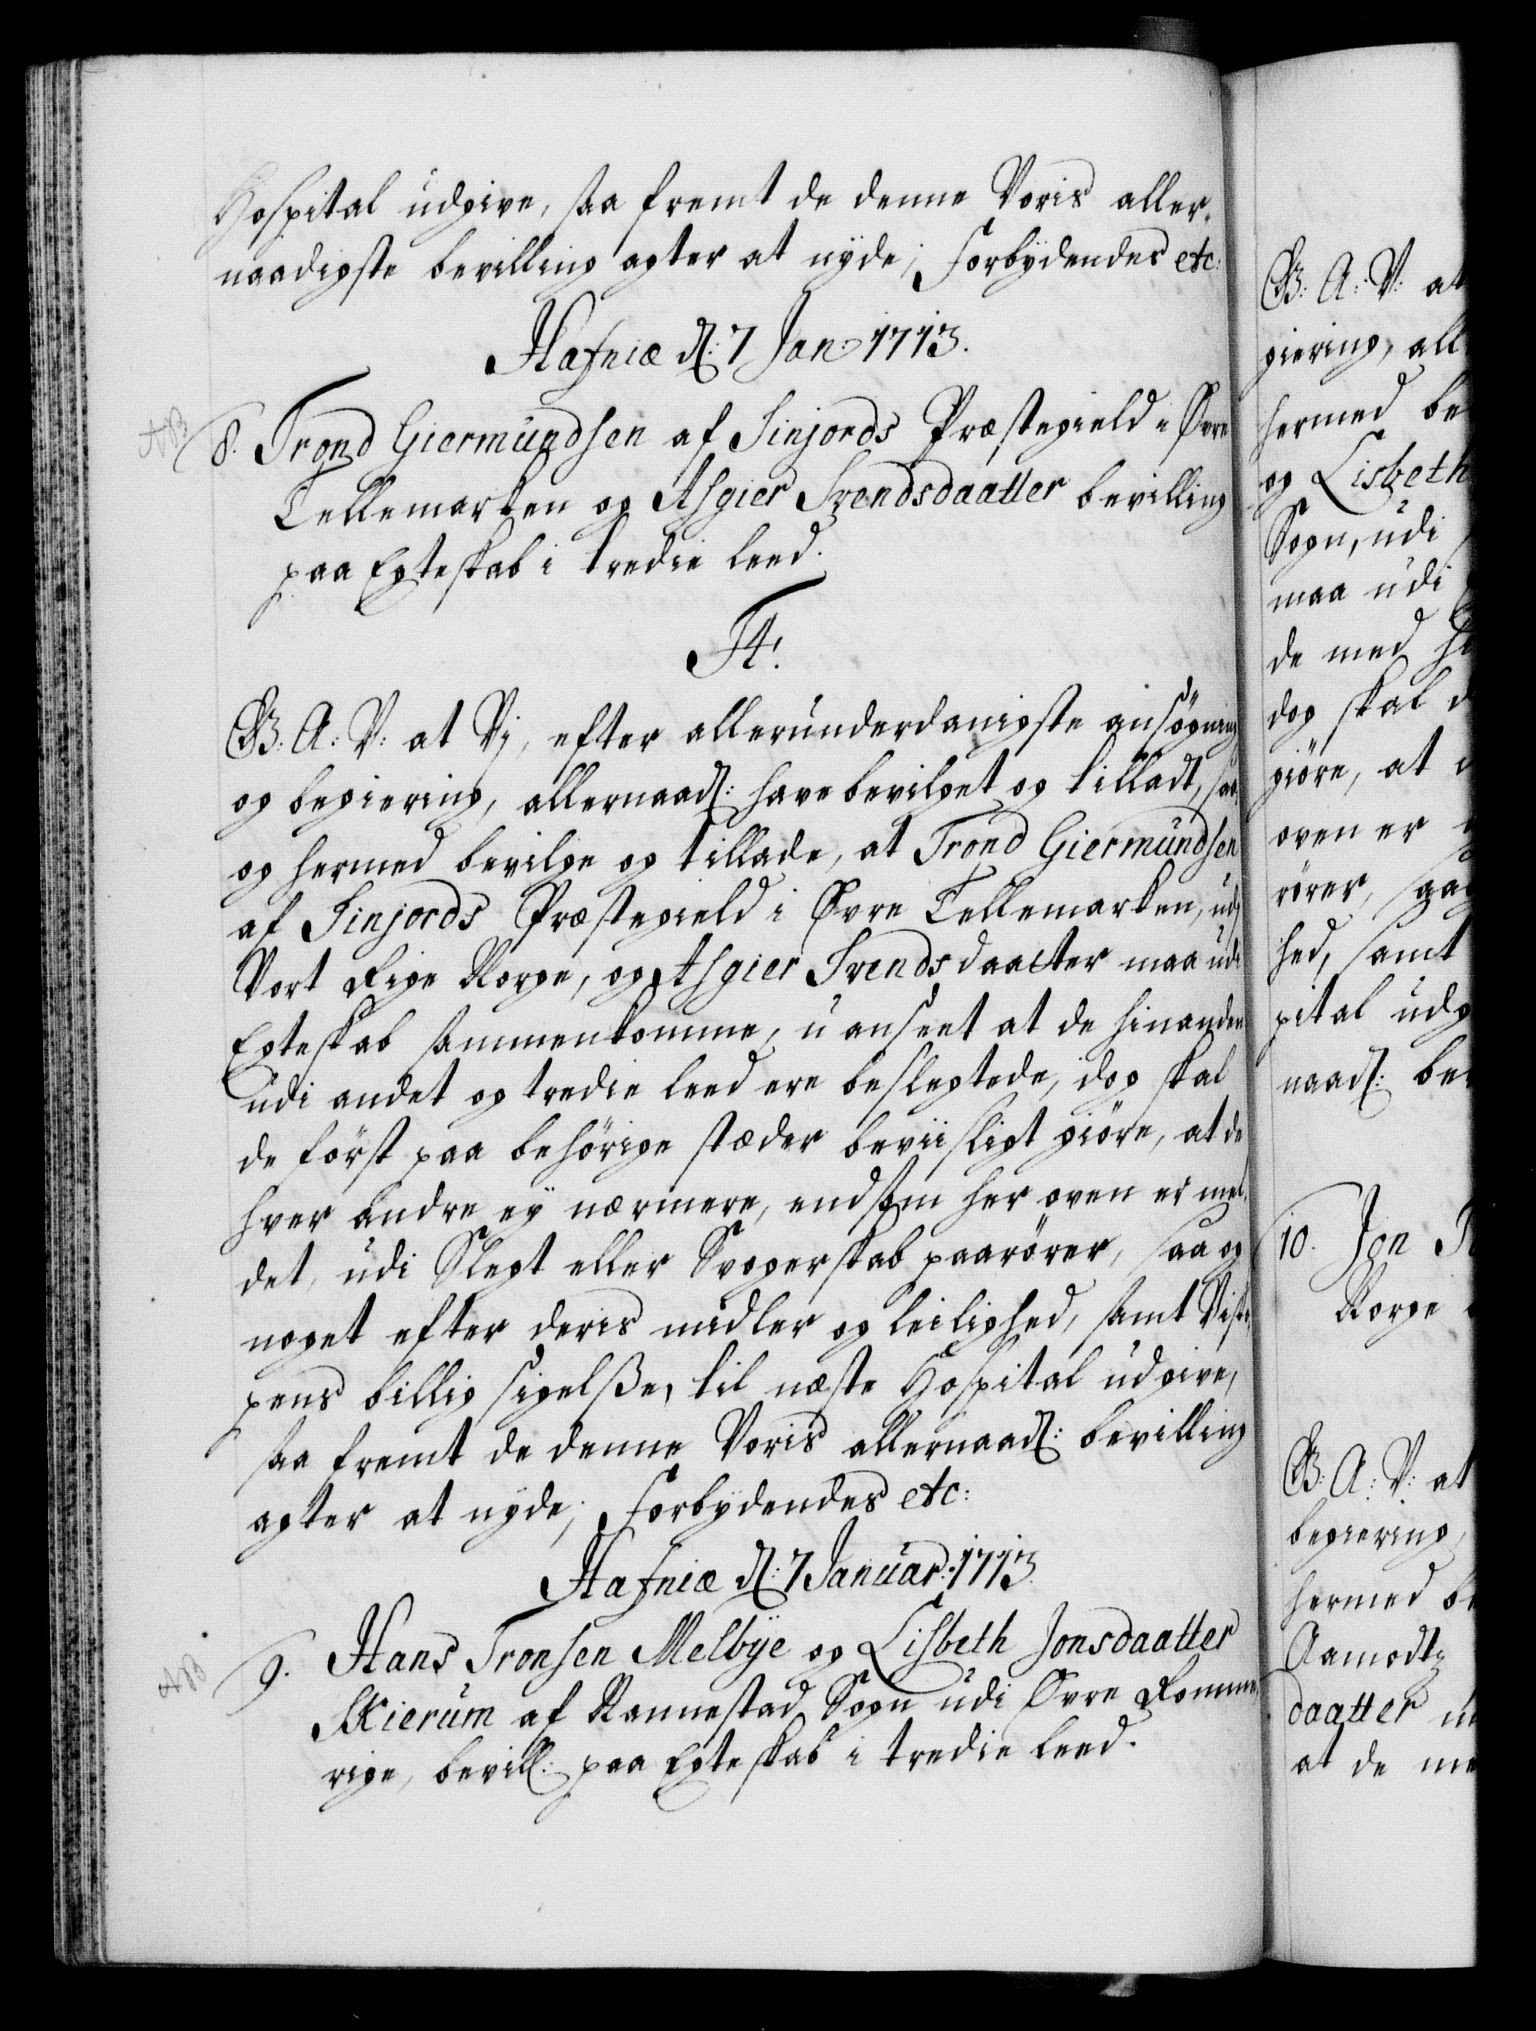 Hospital udgive, saa fremt de denne Voris aller-
naadigste bevilling agter at nyde; Forbydendes etc:
Hafniæ d: 7 Jan: 1713.
8. Trond Giermundsen af Sinjords Præstegield i Øvre
Tellemarken og Asgier Svendsdaatter bevilling
paa Egteskab i tredie leed.
F4.
G: A: V: at Vj, efter allerunderdanigste ansøgning
og begiering, allernaad: have bevilget og tilladt, saa
og hermed bevilge og tillade, at Trond Giermundsen
af Sinjords Præstegield i Øvre Tellemarken, udj
Vort Rige Norge, og Asgier Svendsdaatter maa udi
Egteskab sammenkomme, u anseet at de hinanden
udi andet og tredie leed ere beslegtede, dog skal
de först paa behörige stæder beviisligt giöre, at de
hver andre ey nærmere, end som her oven er mel-
det, udi Slegt eller Svogerskab paarörer, saa og
noget efter deris midler og leilighed, samt Vis-
pens billig sigelße, til næste Hospital udgive,
saa fremt de denne Voris allernaad: bevilling
agter at nyde; Forbydendes etc:
Hafniæ d: 7 Januar: 1713.
9. Hans Tronsen Melbye og Lisbeth Jonsdaatter
Skierum af Nannestad Sogn udi Øvre Romme-
rige, bevill: paa Egteskab i tredie leed.
G: A: V: at
giering, all
hermed be
og Lisbeth
Sogn, udi
maa udi
de med hi
dog skal d
giöre, at
oven er
rörer, saa
hed, samt
pital udg
naad: be
10. Jon
Norge
G: A: V: at
begiering,
hermed be
Aamodtz
daatter m
at de me